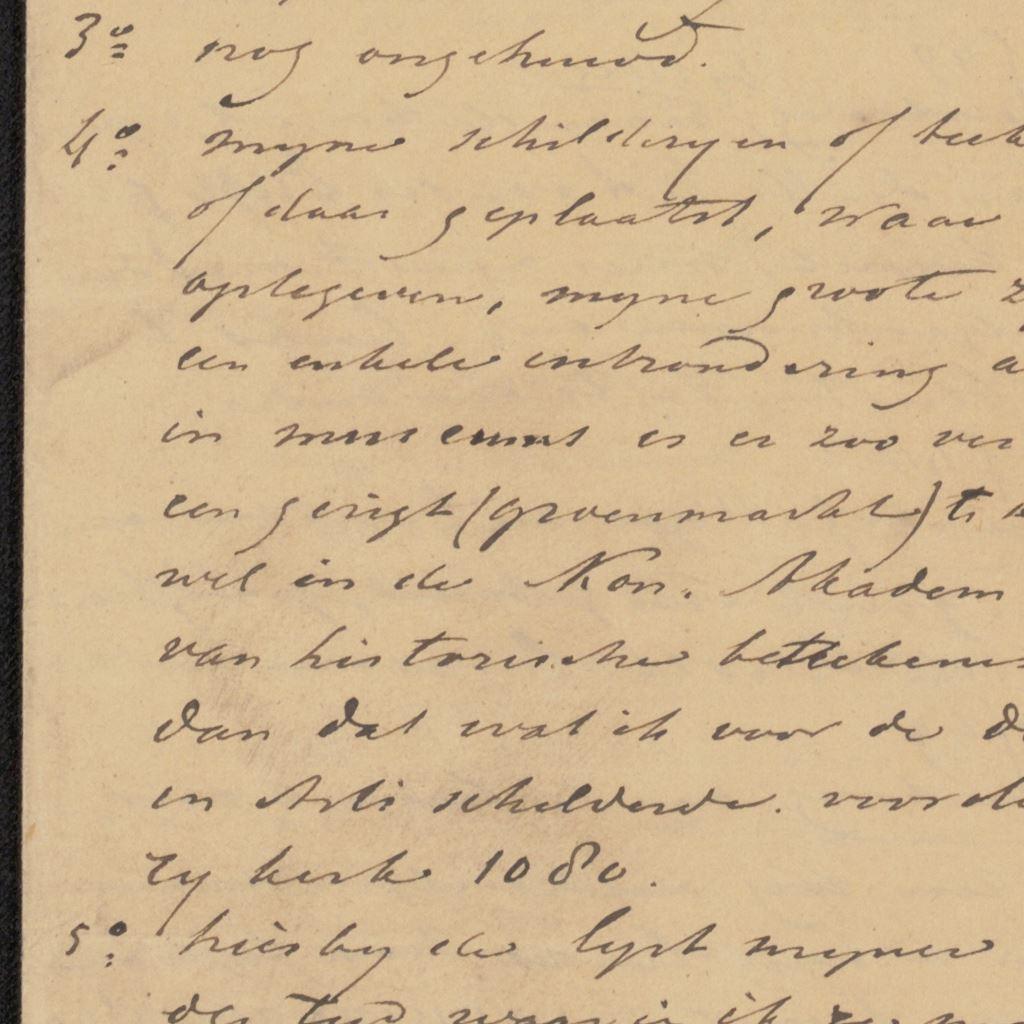 3º nog ongehuwd.
4º myne schilderyen of teek
of daar geplaatst, waar
optegeven, myne groote
een enkele uitzondering a
in museums er is er zoo ver
een gezigt (groenmarkt) te
wel in de Kon. Akadem
van historische betekenis
dan dat wat ik voor de
in Arti schilderde. voor de
zy kerk 1080.
5º hierby de lyst myner
der tyd waarin ik